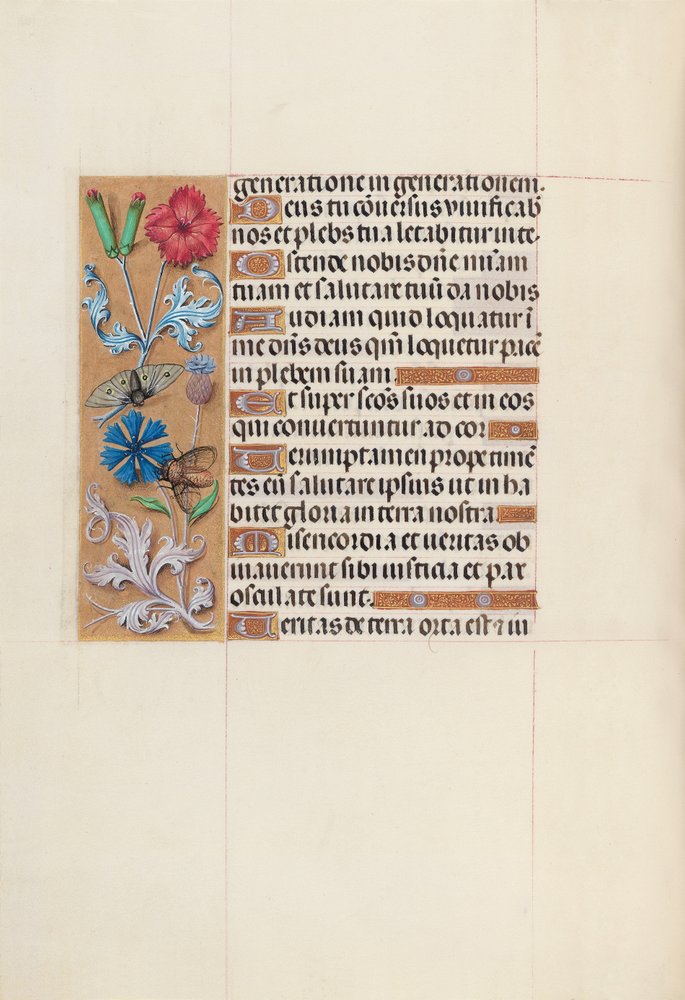 generatione in generationem.
Deus tu cōversus vivificab
nos et plebs tua letabitur in te.
Ostende nobis dñe mīam
tuam et salutare tuū da nobis
Audiam quid loquatur ī
me dñs deus qm̄ loquetur pacē
in plebem suam.
Et super scōs suos et in eos
qui convertuntur ad cor
Verumptamen prope timē
tes eū salutare ipsius ut inha
bitet gloria in terra nostra
Misericordia et veritas ob
viaverunt sibi iusticia et pax
osculate sunt.
Veritas de terra orta est ⁊ iu